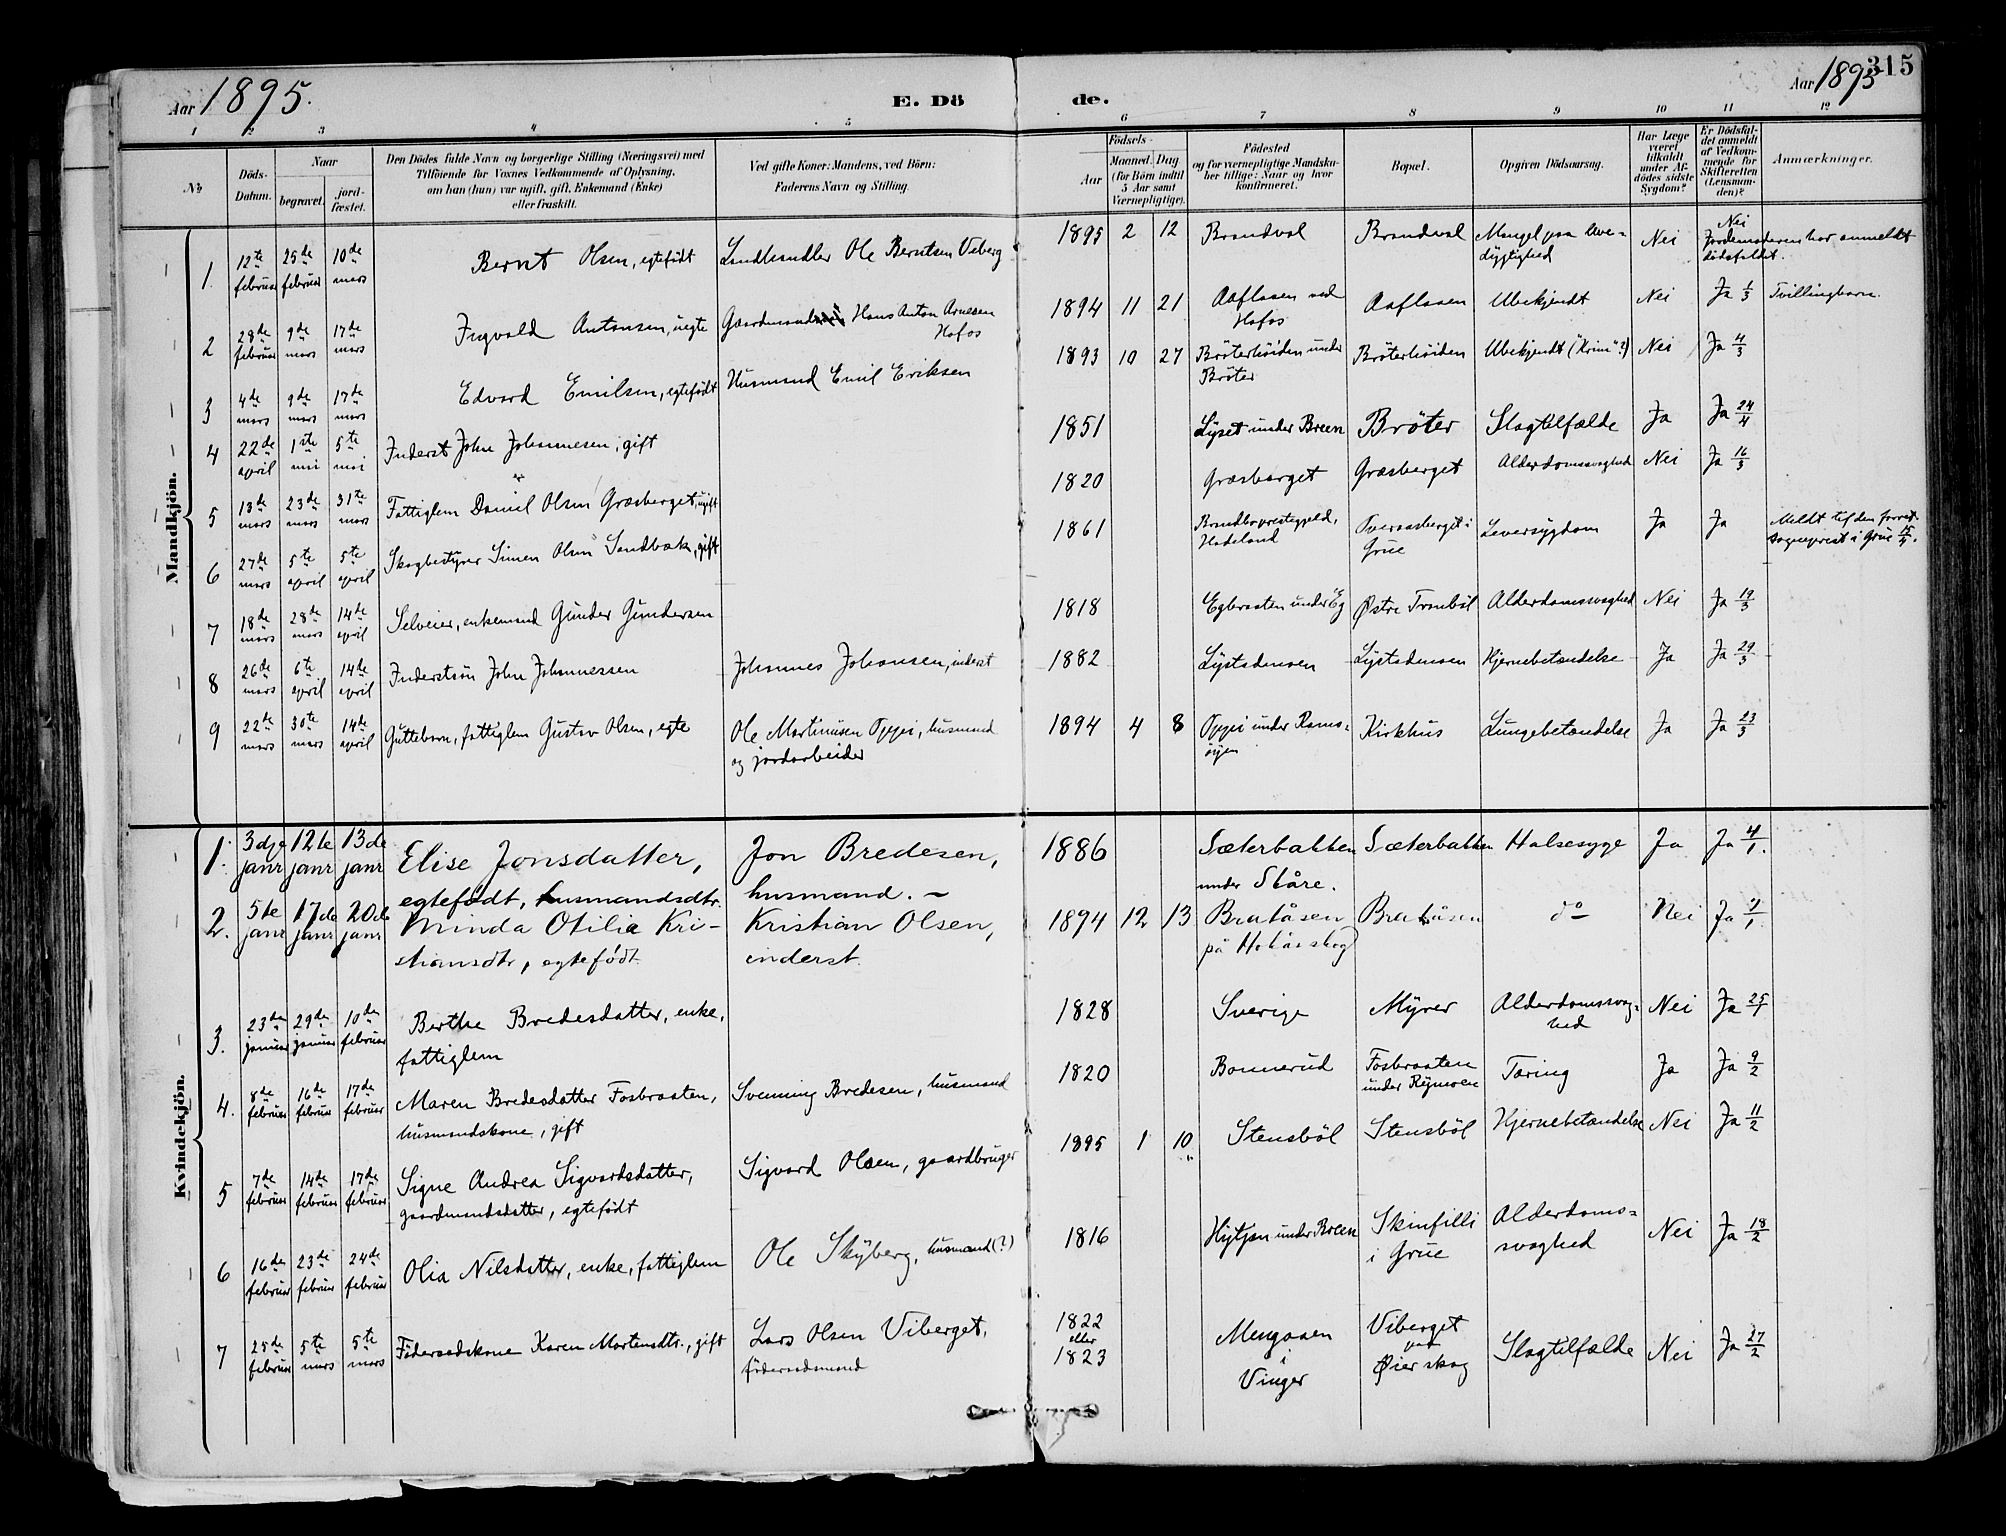 Aar 1895.
E. Dö
de.
Aar 1895
315
1 2 3 4 5 6 7 8 9 10 11 12
No
Döds-Datum.
Naar
begravet.
jord-fæstet.
Den Dödes fulde Navn og borgerlige Stilling (Næringsvei) med
Tilföiende for Voxnes Vedkommende af Oplysning,
om han (hun) var ugift, gift, Enkemand (Enke)
eller fraskilt.
Ved gifte Koner: Mandens, ved Börn:
Faderens Navn og Stilling.
Födsels-
Aar
Maaned. Dag
(for Börn indtil
5 Aar samt
Værnepligtige).
Födested
og for værnepligtige Mandska-
ber tillige: Naar og hvor
konfirmeret.
Bopæl.
Opgiven Dödsaarsag.
Har Læge
været
tilkaldt
under Af-
dödes sidste
Sygdom?
Er Dödsfal-
det anmeldt
af Vedkom-
mende for
Skifteretten
(Lensman-
den)?
Anmærkninger.
Mandkjön.
1. 12te februar 25de februar 10de mars Bernt Olsen, egtefödt Landhandler Ole Berntsen Viberg 1895 2 12 Brandval Brandval Mangel paa leve-
dygtighed Nei Nei
Jordemoderen har anmeldt
dödsfaldet.
2 28de februar 9de mars 17de mars Ingvald Antonsen, uegte Gaardmand Hans Anton Arnesen
Hofos 1894 11 21 Aaflaaen ved
Hofos Aaflaaen Ubekjendt Nei Ja 1/3 Tvillingbarn.
3 4de mars 9de mars 17de mars Edvard Emilsen, egtefödt Husmand Emil Eriksen 1893 10 27 Bröterhöiden under
Bröter Bröterhöiden Ubekjendt ("Krim"?) Nei Ja 4/3
4 22de april 1ste mai 5te mai Inderst John Johannesen, gift 1851 Lyset under Breen Bröter Slagtilfælde Ja Ja 24/4
5 13de mars 23de mars 31te mars Fattiglem Daniel Olsen Græsberget, ugift 1820 Græsberget Græsberget Alderdomssvaghed Nei Ja 16/3
6 27de mars 5te april 5te april Skogbestyrer Simen Olsen Sandbæk, gift 1861 Brandbo prestegjeld,
Hadeland Tveraasberget i
Grue Leversygdom Ja Ja Meldt til den forret.
sogneprest i Grue 15/4.
7 18de mars 28de mars 14de april Selveier, enkemand Gunder Gundersen 1818 Egbraaten under Eg Østre Tranböl Alderdomssvaghed Nei Ja 19/3
8 26de mars 6te april 14de april Inderstsön John Johannessen Johannes Johansen, inderst 1882 Lystadmoen Lystadmoen Hjernebetændelse Ja Ja 29/3
9 22de mars 30te mars 14de april Guttebarn, fattiglem Gustav Olsen, egte Ole Martinusen Oppi, husmand
og jordarbeider 1894 4 8 Oppi under Rams-
öien Kirkhus Lungebetændelse Ja Ja 23/3
Kvindekjön.
1. 3dje janr 12te janr 13de janr Elise Jonsdatter,
egtefödt, husmandsdtr. Jon Bredesen,
husmand. 1886 Sæterbakken
under Skåre. Sæterbakken Halsesyge Ja Ja 4/1.
2. 5te janr 17de janr 20de janr Minda Otilia Kri-
stiansdtr, egtefödt Kristian Olsen,
inderst. 1894 12 13 Bratåsen
på Hokåsskog Bratåsen do Nei Ja 7/1.
3. 23de januar 29de januar 10de februar Berthe Bredesdatter, enke,
fattiglem 1828 Sverige Myrer Alderdomssvag-
hed Nei Ja 25/1
4. 8de februar 16de februar 17de februar Maren Bredesdatter Fosbraaten,
husmandskone, gift Svenning Bredesen, husmand 1820 Bonnerud Fosbraaten
under Rymoen Tæring Ja Ja 9/2
5 7de februar 14de februar 17de februar Signe Andrea Sigvardsdatter,
gaardmandsdatter, egtefödt Sigvard Olsen, gaardbruger 1895 1 10 Stensböl Stensböl Hjernebetændelse Nei Ja 11/2
6 16de februar 23de februar 24de februar Olia Nilsdatter, enke, fattiglem Ole Skyberg, husmand (?) 1816 Hytjan under Breen Skinfilli
i Grue Alderdoms-
svaghed Nei Ja 18/2
7 25de februar 5te mars 5te mars Föderaadskone Karen Mortensdtr., gift Lars Olsen Viberget,
föderaadsmand 1822
eller
1823 Mengaaen
i
Vinger Viberget
paa
Øierskog Slagtilfælde Nei Ja 27/2